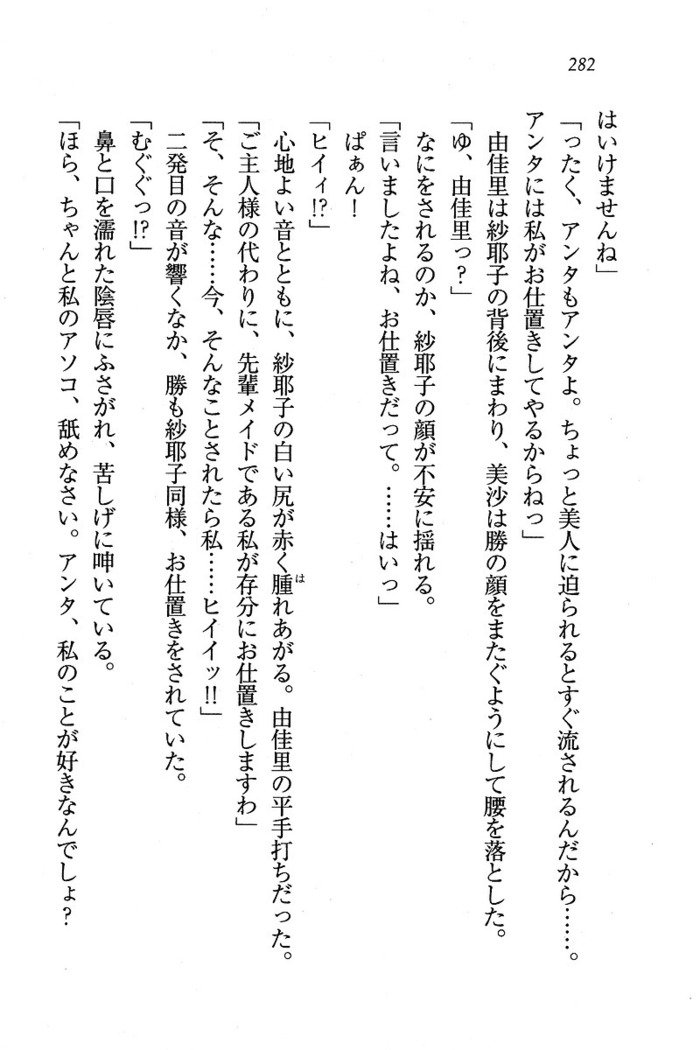 282
はいけませんね」
「ったく、アンタもアンタよ。ちょっと美人に迫られるとすぐ流されるんだから……。
アンタには私がお仕置きしてやるからねっ」
由佳里は紗耶子の背後にまわり、美沙は勝の顔をまたぐようにして腰を落とした。
「ゆ、由佳里っ？」
なにをされるのか、紗耶子の顔が不安に揺れる。
「言いましたよね、お仕置きだって。……はいっ」
ぱぁん！
「ヒイィ!?」
心地よい音とともに、紗耶子の白い尻が赤く腫れあがる。由佳里の平手打ちだった。
は
「ご主人様の代わりに、先輩メイドである私が存分にお仕置きしますわ」
「そ、そんな……今、そんなことされたら私……ヒイイッ!!」
二発目の音が響くなか、勝も紗耶子同様、お仕置きをされていた。
「むぐぐっ!?」
鼻と口を濡れた陰唇にふさがれ、苦しげに呻いている。
「ほら、ちゃんと私のアソコ、舐めなさい。アンタ、私のことが好きなんでしょ？